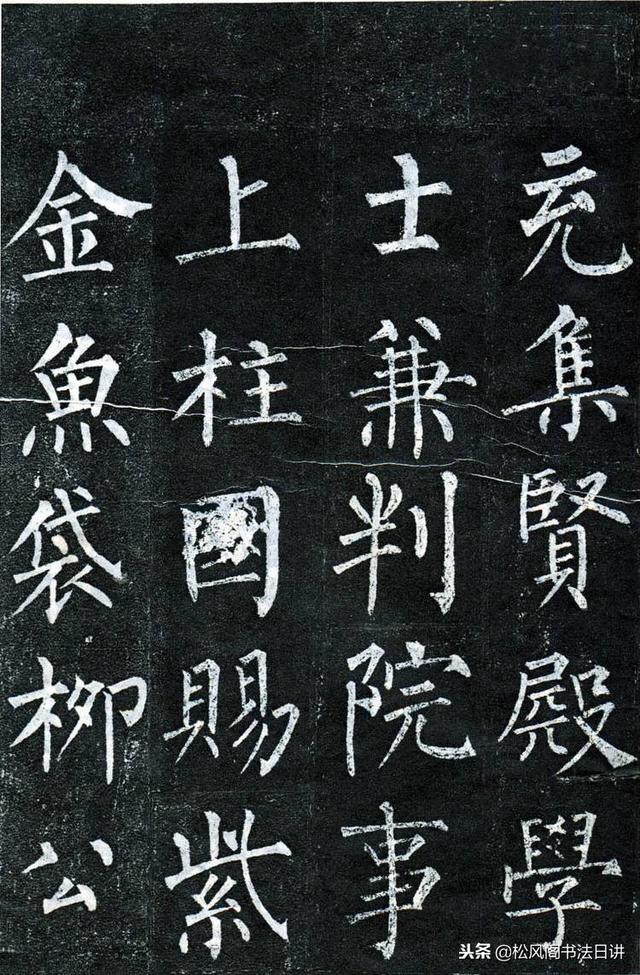 充集賢殿學
士兼判院事
上柱國賜紫
金魚袋柳公
头条 @松风阁书法日讲